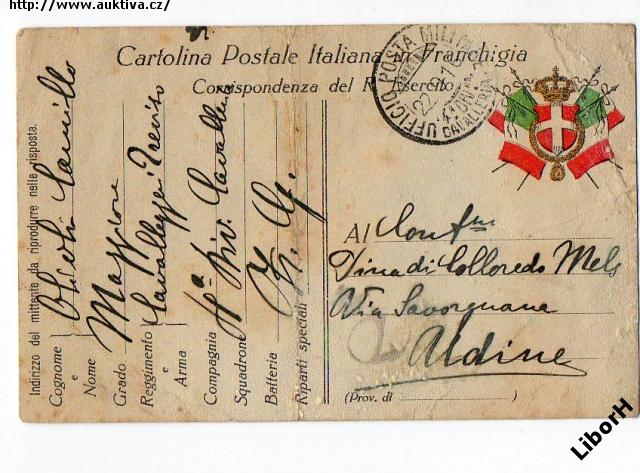 http://www.auktiva.cz/
Cartolina Postale Italiana in Franchigia
Corrispondenza del R. Esercito
UFFICIO POSTA MILITARE
CAVALLERIA
Indirizzo del mittente da riprodurre nelle risposta.
Cognome
e
Nome
Camillo
Grado
Maggiore
Reggimento
e
Arma
Cavalleggeri Treviso
Compagnia
Squadrone
4ª Div. Cavalleria
Batteria
Riparti speciali
Al
Dina di Colloredo Mels
Via Savorgnana
Udine
(Prov. di
)
LiborH